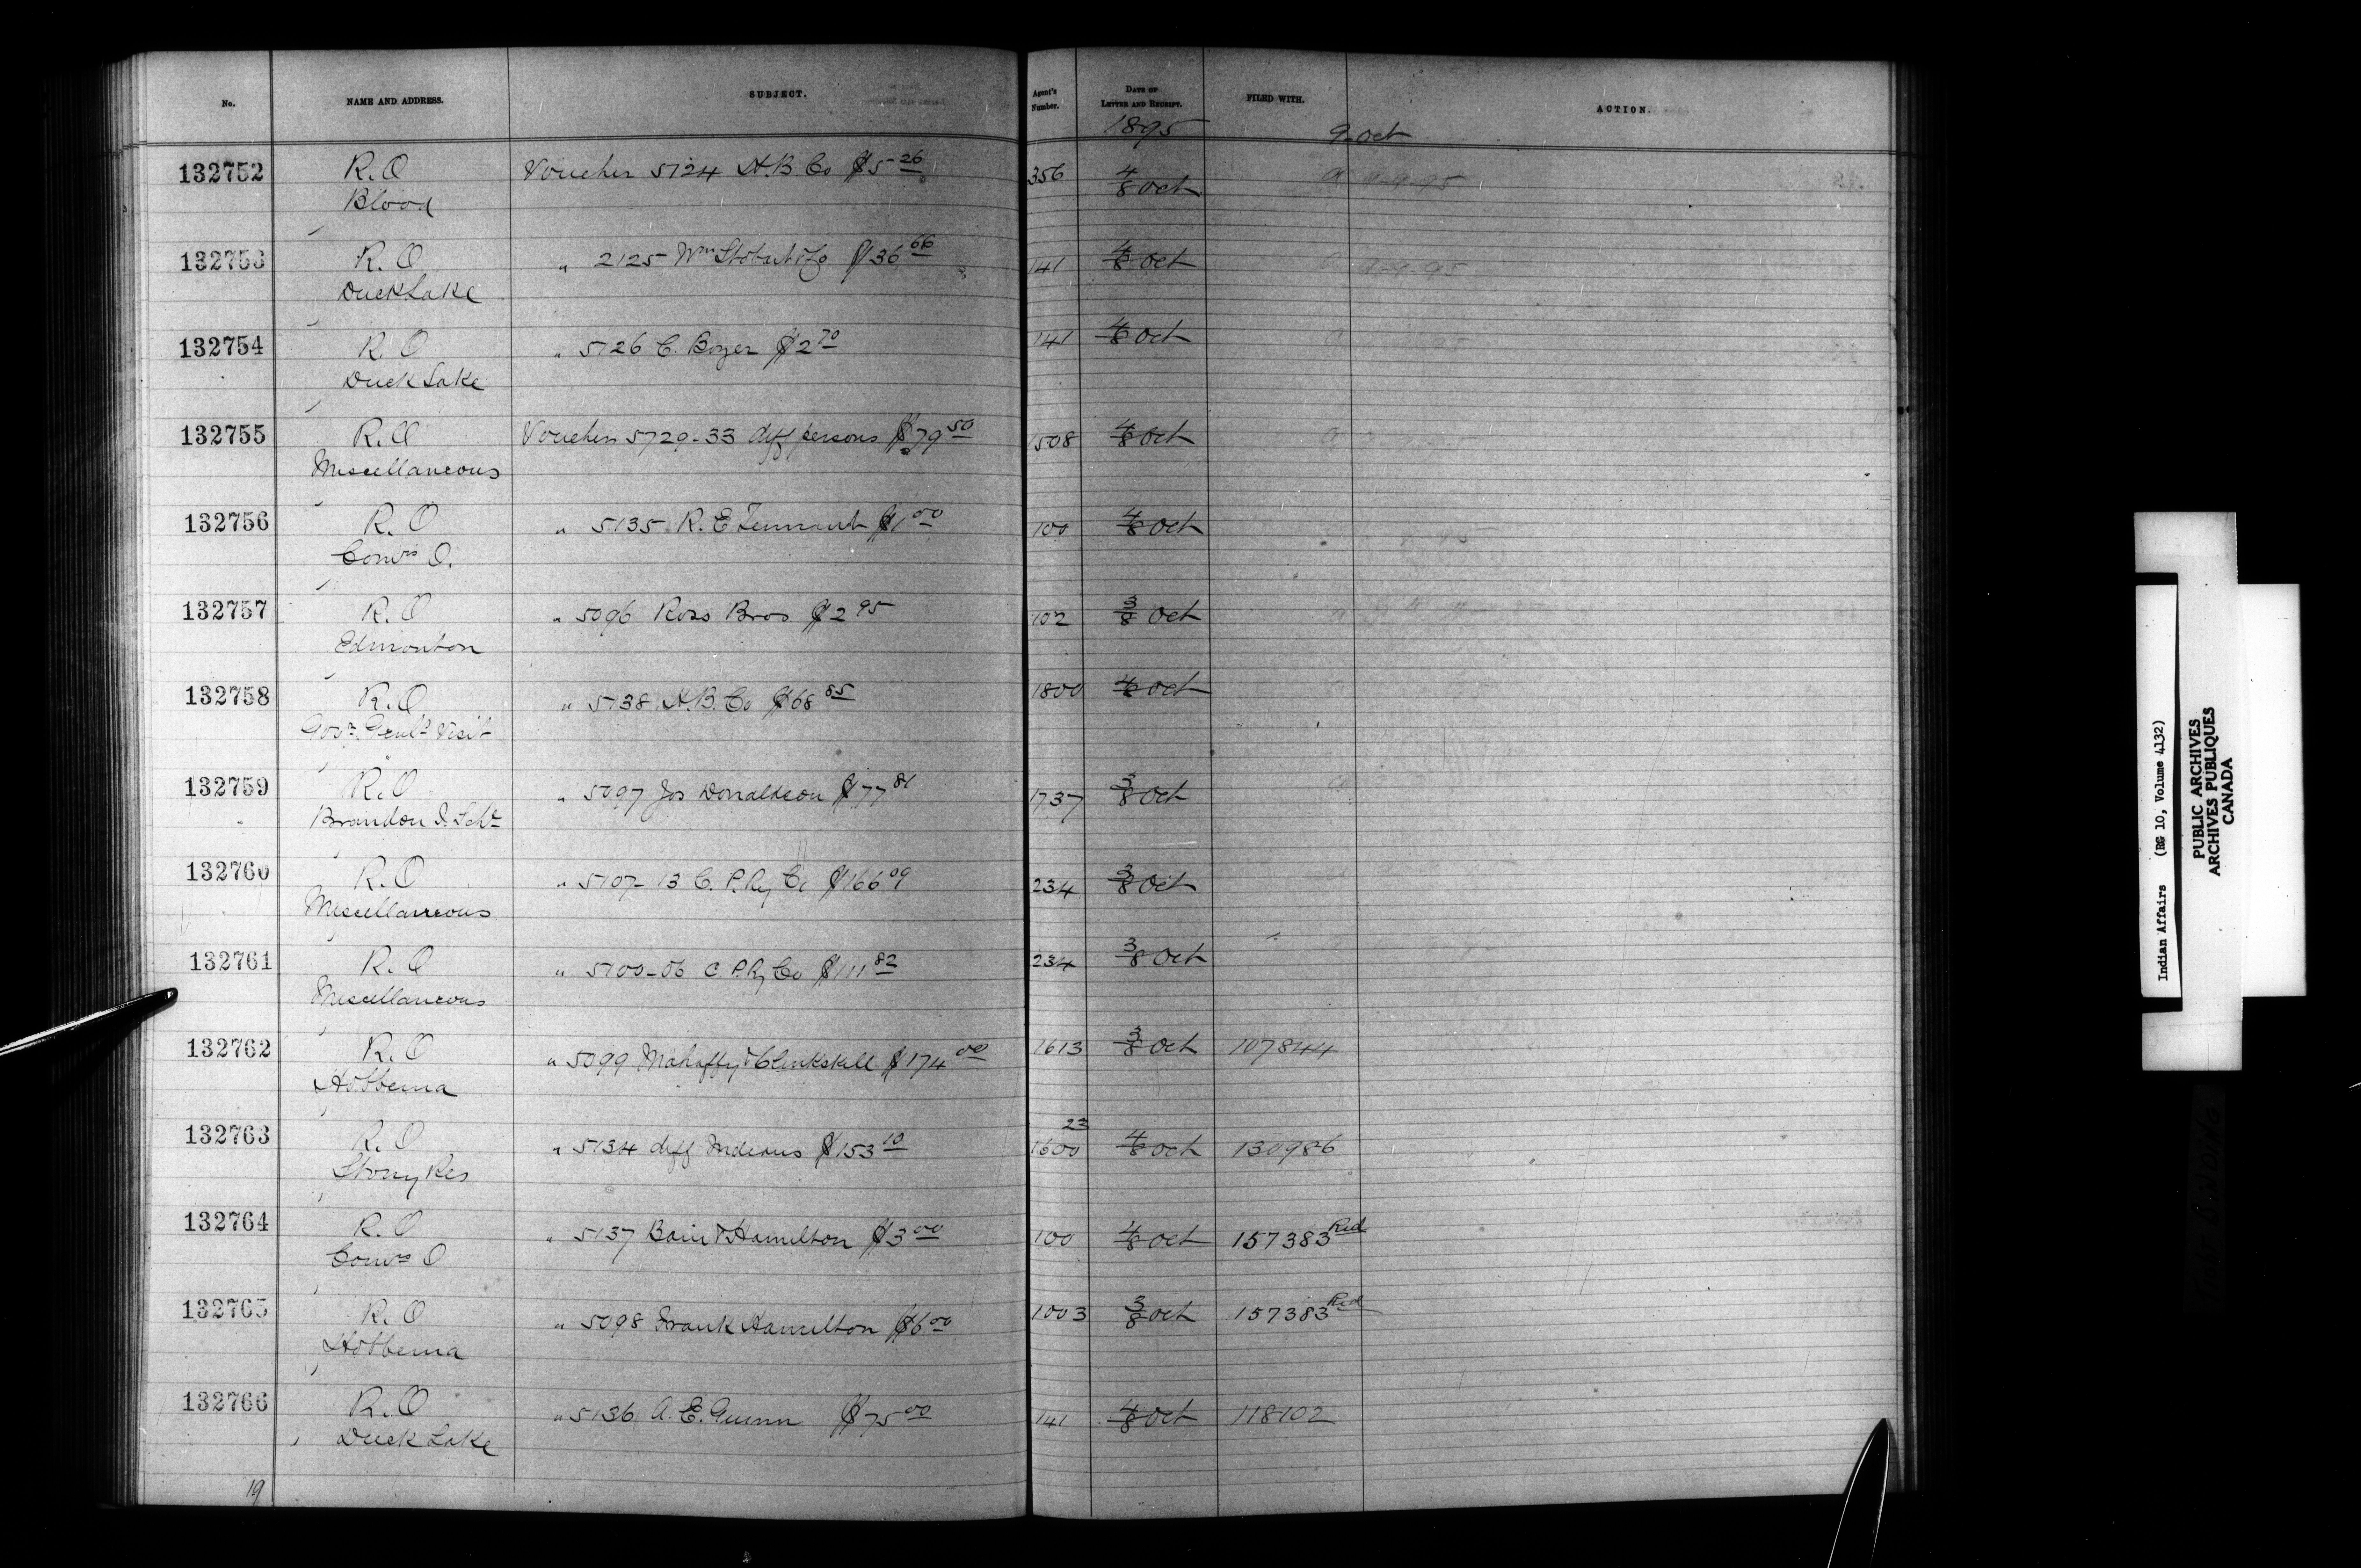 No. NAME AND ADDRESS. SUBJECT. Agent's Number. DATE OF LETTER AND RECEIPT. FILED WITH. ACTION.
1895 9 Oct
132752 R.O Voucher 5124 H.B Co $5 26 356 4/8 Oct
Blood
132753 R.O " 2125 Wm Stobart & Co $36 66 141 4/8 Oct
Duck Lake
132754 R.O " 5126 C. Boyer $2 70 141 4/8 Oct
Duck Lake
132755 R.O Vouchers 5129-33 diff persons $79 50 1508 4/8 Oct
Miscellaneous
132756 R.O " 5135 R. E Tennant $1 00 100 4/8 Oct
Comrs O.
132757 R.O " 5096 Ross Bros $2 95 102 3/8 Oct
Edmonton
132758 R.O " 5138 H.B. Co $68 85 1800 4/8 Oct
Govr. Genl's Visit
132759 R.O " 5097 Jos Donaldson $77 81 1737 3/8 Oct
Brandon I. Schl
132760 R.O " 5107-13 C. P. Ry Co $166 09 234 3/8 Oct
Miscellaneous
132761 R.O " 5100-06 C. P. Ry Co $111 82 234 3/8 Oct
Miscellaneous
132762 R.O " 5099 Mahaffy & Clinkskill $174 00 1613 3/8 Oct 107844
Hobbema
132763 R.O " 5134 diff Indians $153 10 1600 23 4/8 Oct 130986
Stony Res
132764 R.O " 5137 Bain & Hamilton $3 00 100 4/8 Oct 157383 Red
Comrs O
132765 R.O " 5098 Frank Hamilton $6 00 1003 3/8 Oct 157383 Red
Hobbema
132766 R.O " 5136 A. E. Gunn $75 00 141 4/8 Oct 118102
Duck Lake
19
Indian Affairs (RG 10, Volume 4132)
PUBLIC ARCHIVES
ARCHIVES PUBLIQUES
CANADA